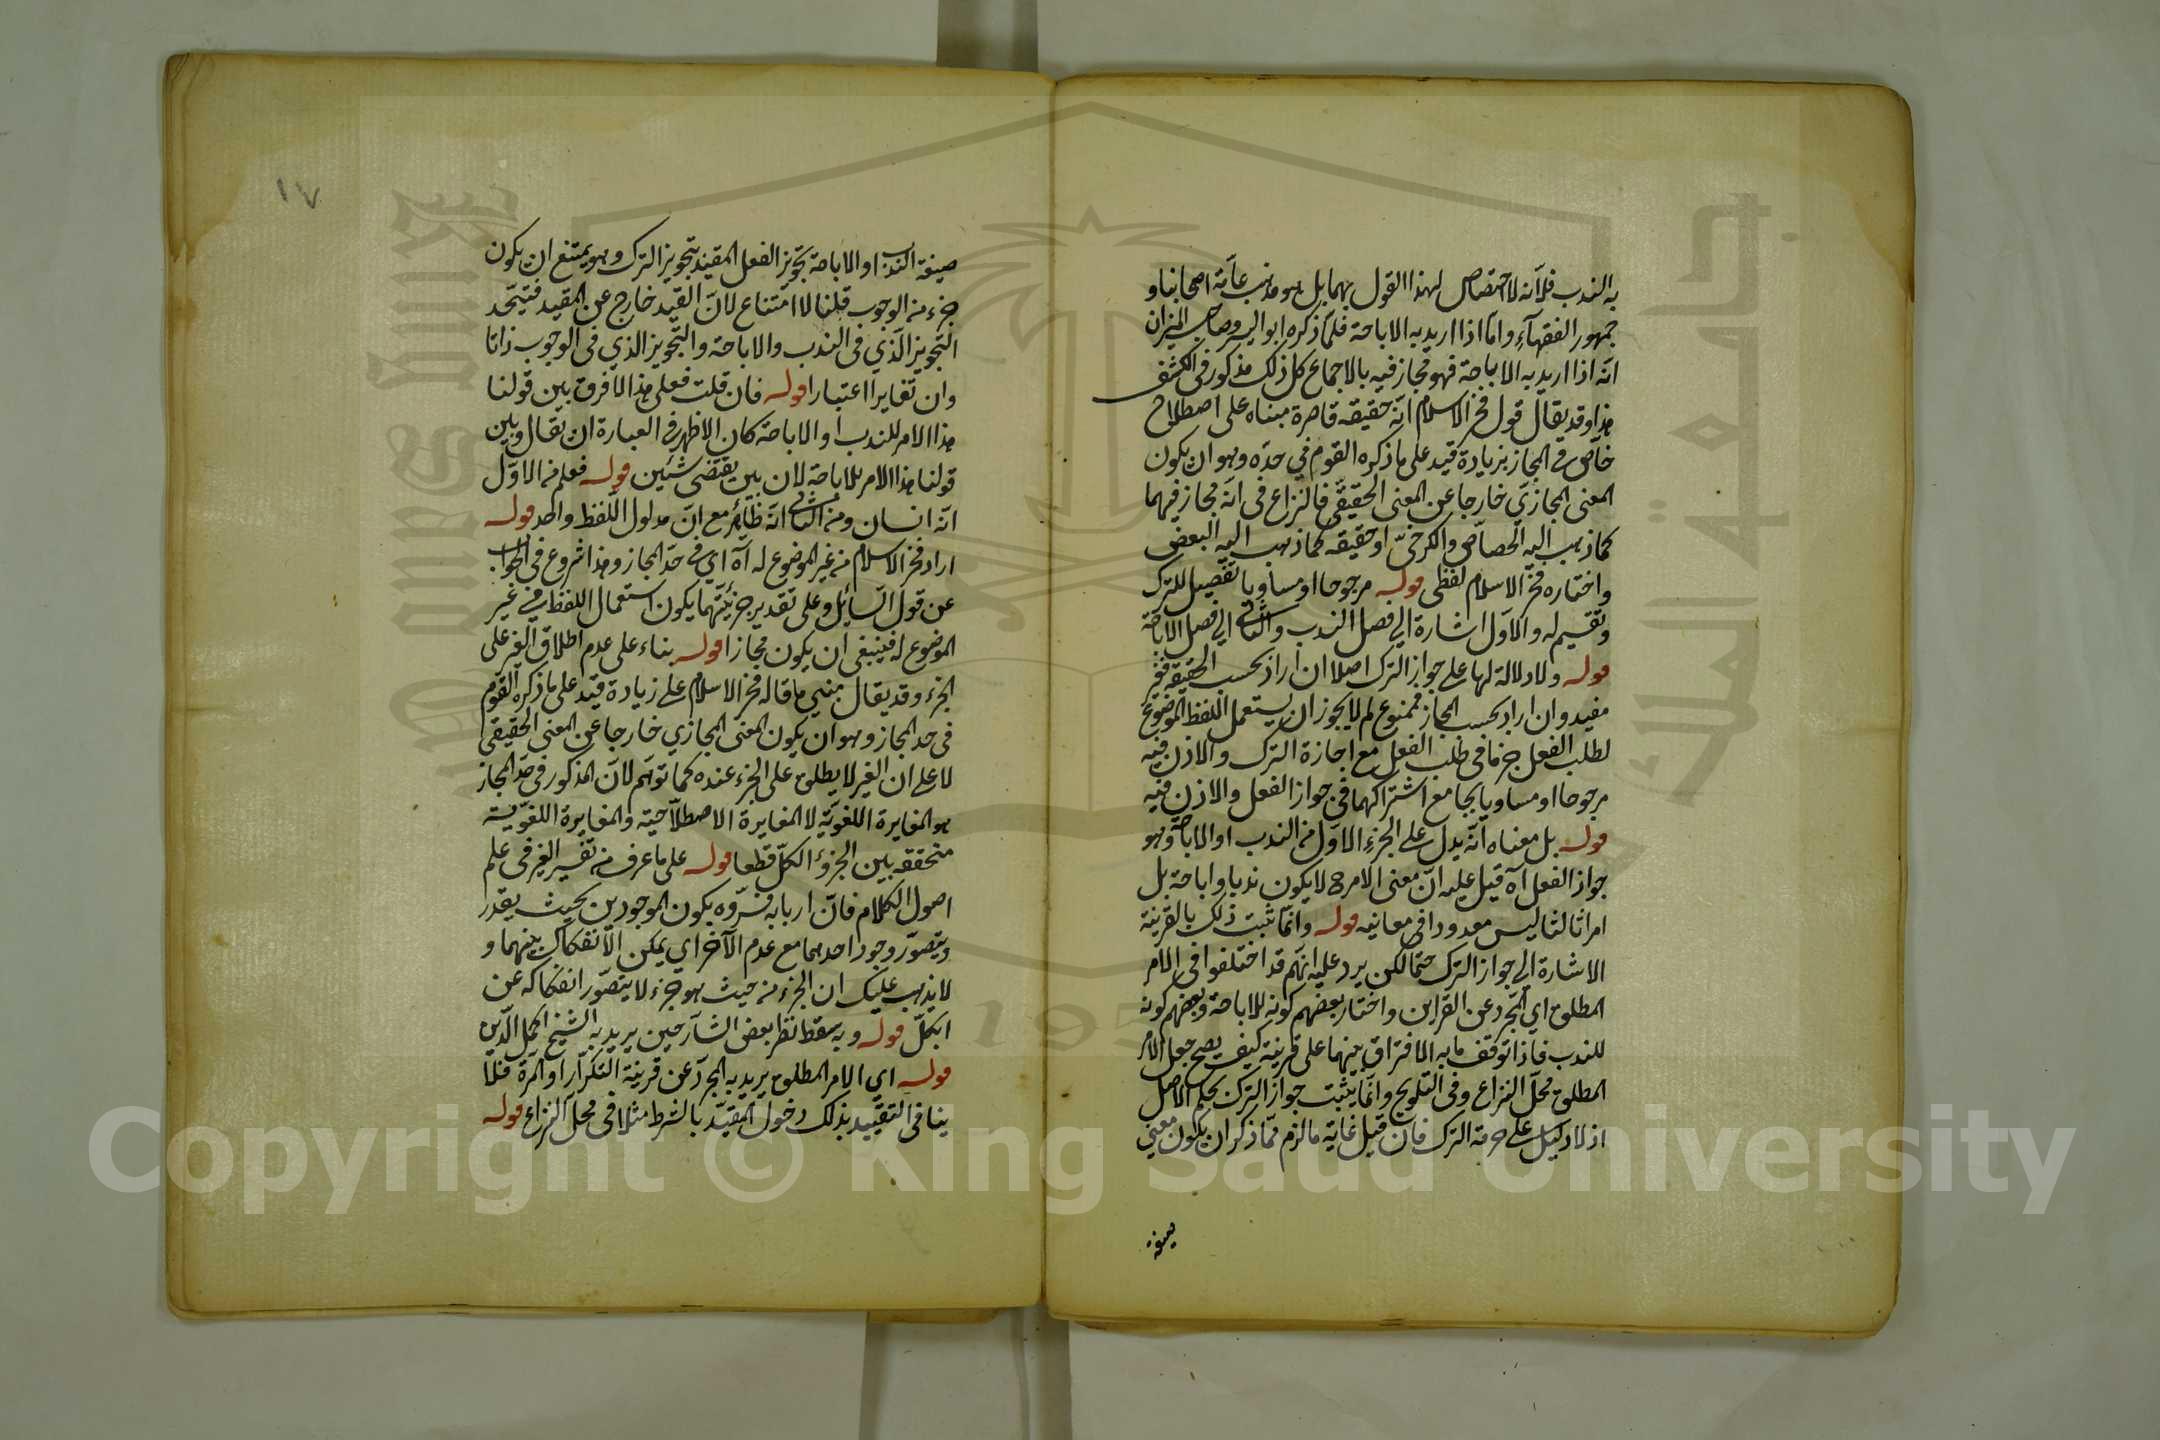 به الندب فلانه لا اختصاص لهذا القول بهما بل هو مذهب عامة اصحابنا و
جمهور الفقهآء واما اذا اريد به الاباحة فلما ذكره ابو اليسر وصاحب الميزان
انه اذا اريد به الاباحة فهو مجاز فيه بالاجماع كل ذلك مذكور فى الكشف
هذا وقد يقال قول فخر الاسلام انه حقيقه قاصرة مبناه على اصطلاح
خاص فى المجاز بزيادة قيد على ما ذكره القوم في حده وهو ان يكون
المعنى المجازى خارجا عن المعنى الحقيقى فالنزاع فى انه مجاز فيهما
كما ذهب اليه الجصاص والكرخى او حقيقه كما ذهب اليه البعض
واختاره فخر الاسلام لفظى قوله مرجوحا او مساويا تفصيل للترك
وتقسيم له والاول اشارة الي فصل الندب والثانى الي فصل الاباحة
قوله ولا دلالة لها على جواز الترك اصلا ان اراد بحسب الحقيقه فغير
مفيد وان اراد بحسب المجاز فممنوع لم لا يجوز ان يستعمل اللفظ الموضوع
لطلب الفعل جزما فى طلب الفعل مع اجازة الترك والاذن فيه
مرجوحا او مساويا بجامع اشتراكهما فى جواز الفعل والاذن فيه
قوله بل معناه انه يدل على الجزء الاول من الندب او الاباحة وهو
جواز الفعل آه قيل عليه ان معنى الامر ح لا يكون ندبا واباحة بل
امرا ثالثا ليس معدودا فى معانيه قوله وانما ثبت ذلك بالقرينة
الاشارة الي جواز الترك حتما لكن يرد عليه انهم قد اختلفوا فى الامر
المطلق اي المجرد عن القراين واختار بعضهم كونه للاباحة وبعضهم كونه
للندب فاذا توقف ما به الافتراق بينهما على قرينة كيف يصح جعل الامر
المطلق محل النزاع وفى التلويح وانما يثبت جواز الترك بحكم الاصل
اذ لا دليل على حرمة الترك فان قيل غاية ما لزم مما ذكر ان يكون معنى
صيغة
١٧
صيغة الندب او الاباحة تجويز الفعل المقيد بتجويز الترك وهو يمتنع ان يكون
جزء من الوجوب قلنا لا امتناع لان القيد خارج عن المقيد فيتحد
التجويز الذي فى الندب والاباحة والتجويز الذي فى الوجوب ذاتا
وان تغايرا اعتبارا قوله فان قلت فعلى هذا لا فرق بين قولنا
هذا الامر للندب او الاباحة كان الاظهر فى العبارة ان يقال وبين
قولنا هذا الامر للاباحة لان بين يقتضى شئين قوله فعلم من الاول
انه انسان ومن الثانى انه طائر مع ان مدلول اللفظ واحد قوله
اراد فخر الاسلام من غير الموضوع له آه اي فى حد المجاز وهذا شروع فى الجواب
عن قول السائل وعلى تقدير جزئيتهما يكون استعمال اللفظ في غير
الموضوع له فينبغى ان يكون مجازا قوله بناء على عدم اطلاق الغير على
الجزء وقد يقال مبني ما قاله فخر الاسلام على زيادة قيد على ما ذكره القوم
فى حد المجاز وهو ان يكون المعنى المجازي خارجا عن المعنى الحقيقى
لا على ان الغير لا يطلق على الجزء عنده كما توهم لان المذكور فى حد المجاز
هو المغايرة اللغوية لا المغايرة الاصطلاحية والمغايرة اللغوية
متحققه بين الجزء والكل قطعا قوله على ما عرف من تفسير الغير فى علم
اصول الكلام فان اربابه فسروه بكون الموجودين بحيث يقدر
ويتصور وجود احدهما مع عدم الآخر اي يمكن الانفكاك بينهما و
لا يذهب عليك ان الجزء من حيث هو جزء لا يتصور انفكاكه عن
الكل قوله وبه سقط نظر بعض الشارحين يريد به الشيخ اكمل الدين
قوله اي الامر المطلق يريد به المجرد عن قرينة التكرار او المرة فلا
ينافى التقييد بذلك دخول المقيد بالشرط مثلا فى محل النزاع قوله
Copyright © King Saud University
جامعة الملك سعود
King Saud University
1957